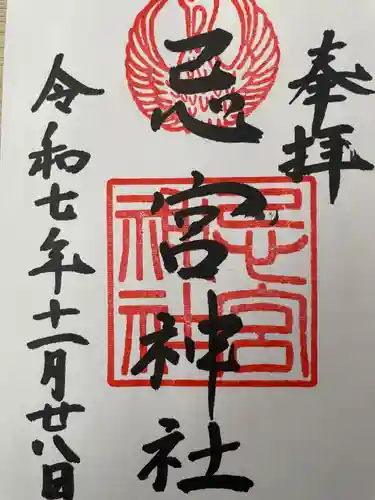 奉拝
忌宮神社
忌宮神社
令和七年十一月廿八日